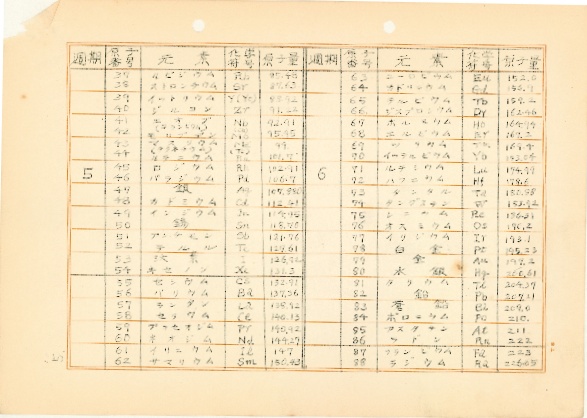 週期 原子番号 元素 化学符号 原子量 週期 原子番号 元素 化学符号 原子量
37 ルビジウム Rb 85.48 63 ユーロピウム Eu 152.0
38 ストロンチウム Sr 87.63 64 ガドリニウム Gd 156.9
39 イットリウム 88.92 65 テルビウム Tb 159.2
40 ジルコン Zr 91.22 66 Dy 162.46
41 Nb 92.91 67 ホルミウム Ho 164.94
42 95.95 68 エルビウム Er 167.2
43 99 69 ツリウム Tm 169.4
44 101.7 70 イッテルビウム Yb 173.04
45 ロジウム Rh 102.91 71 ルテシウム Lu 174.99
5 46 パラジウム Pd 106.7 6 72 ハフニウム Hf 178.6
47 銀 Ag 107.880 73 タンタル Ta 180.88
48 カドミウム Cd 112.41 74 タングステン W 183.92
49 インジウム In 114.76 75 レニウム Re 186.31
50 錫 Sn 118.70 76 オスミウム Os 190.2
51 アンチモン Sb 121.76 77 イリジウム Ir 193.1
52 テルル Te 127.61 78 白金 Pt 195.23
53 沃素 I 126.92 79 金 Au 197.2
54 キセノン Xe 131.3 80 水銀 Hg 200.61
55 セシウム Cs 132.91 81 タリウム Tl 204.39
56 バリウム Ba 137.36 82 鉛 Pb 207.21
57 ランタン La 138.92 83 蒼鉛 Bi 209.0
58 セリウム Ce 140.13 84 ポロニウム Po 210.
59 Pr 140.92 85 アスタチン At 211
60 ネオジム Nd 144.27 86 ラドン Rn 222
61 イリニウム Il 147 87 フランシウム 223
62 サマリウム Sm 150.43 88 ラジウム Ra 226.05